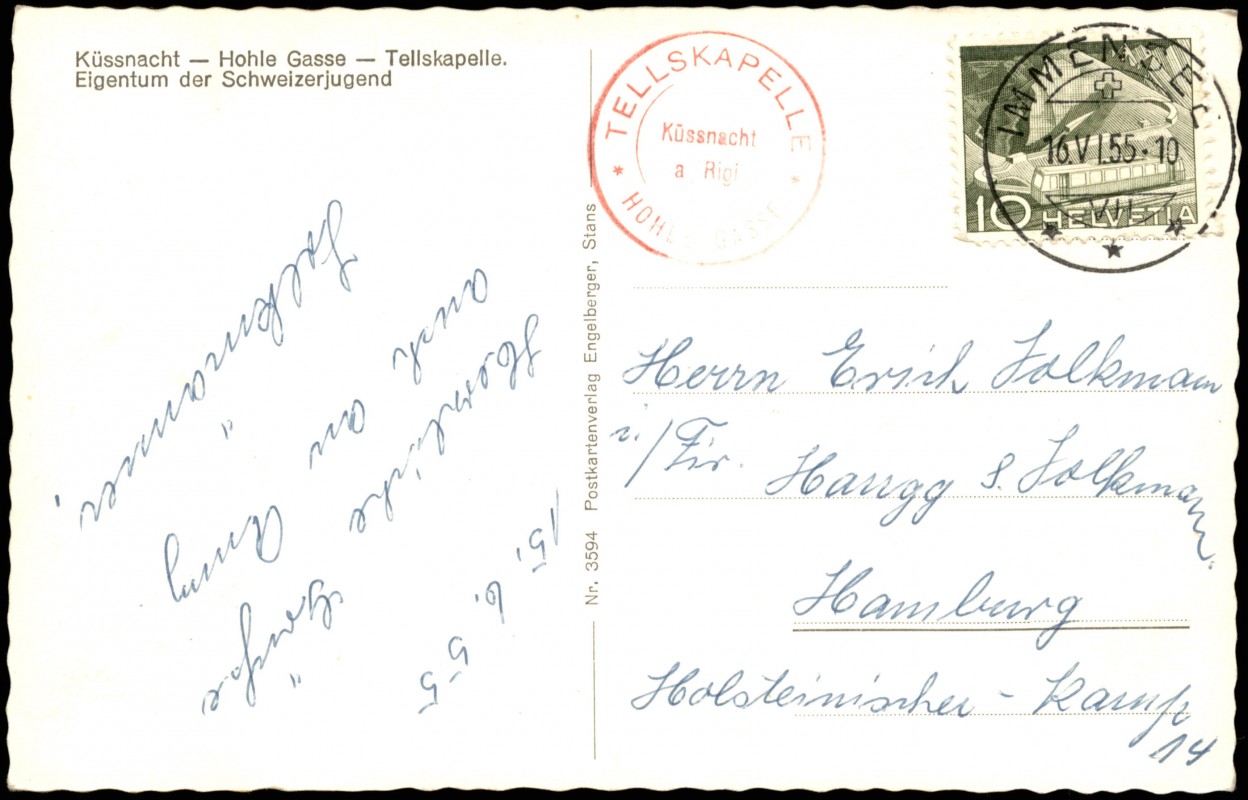 Küssnacht — Hohle Gasse — Tellskapelle.
Eigentum der Schweizerjugend
TELLSKAPELLE
Küssnacht
a Rigi
* HOHLE GASSE *
IMMENSEE
16.VI.55.10
VII
10 HELVETIA
15. 6. 55
Herzliche Grüße
auch an Anny
Nr. 3594 Postkartenverlag Engelberger, Stans
Herrn Erich Folkmann
i/Fir. Harrgg & Folkmann.
Hamburg
Holsteinischer-Kamp
14